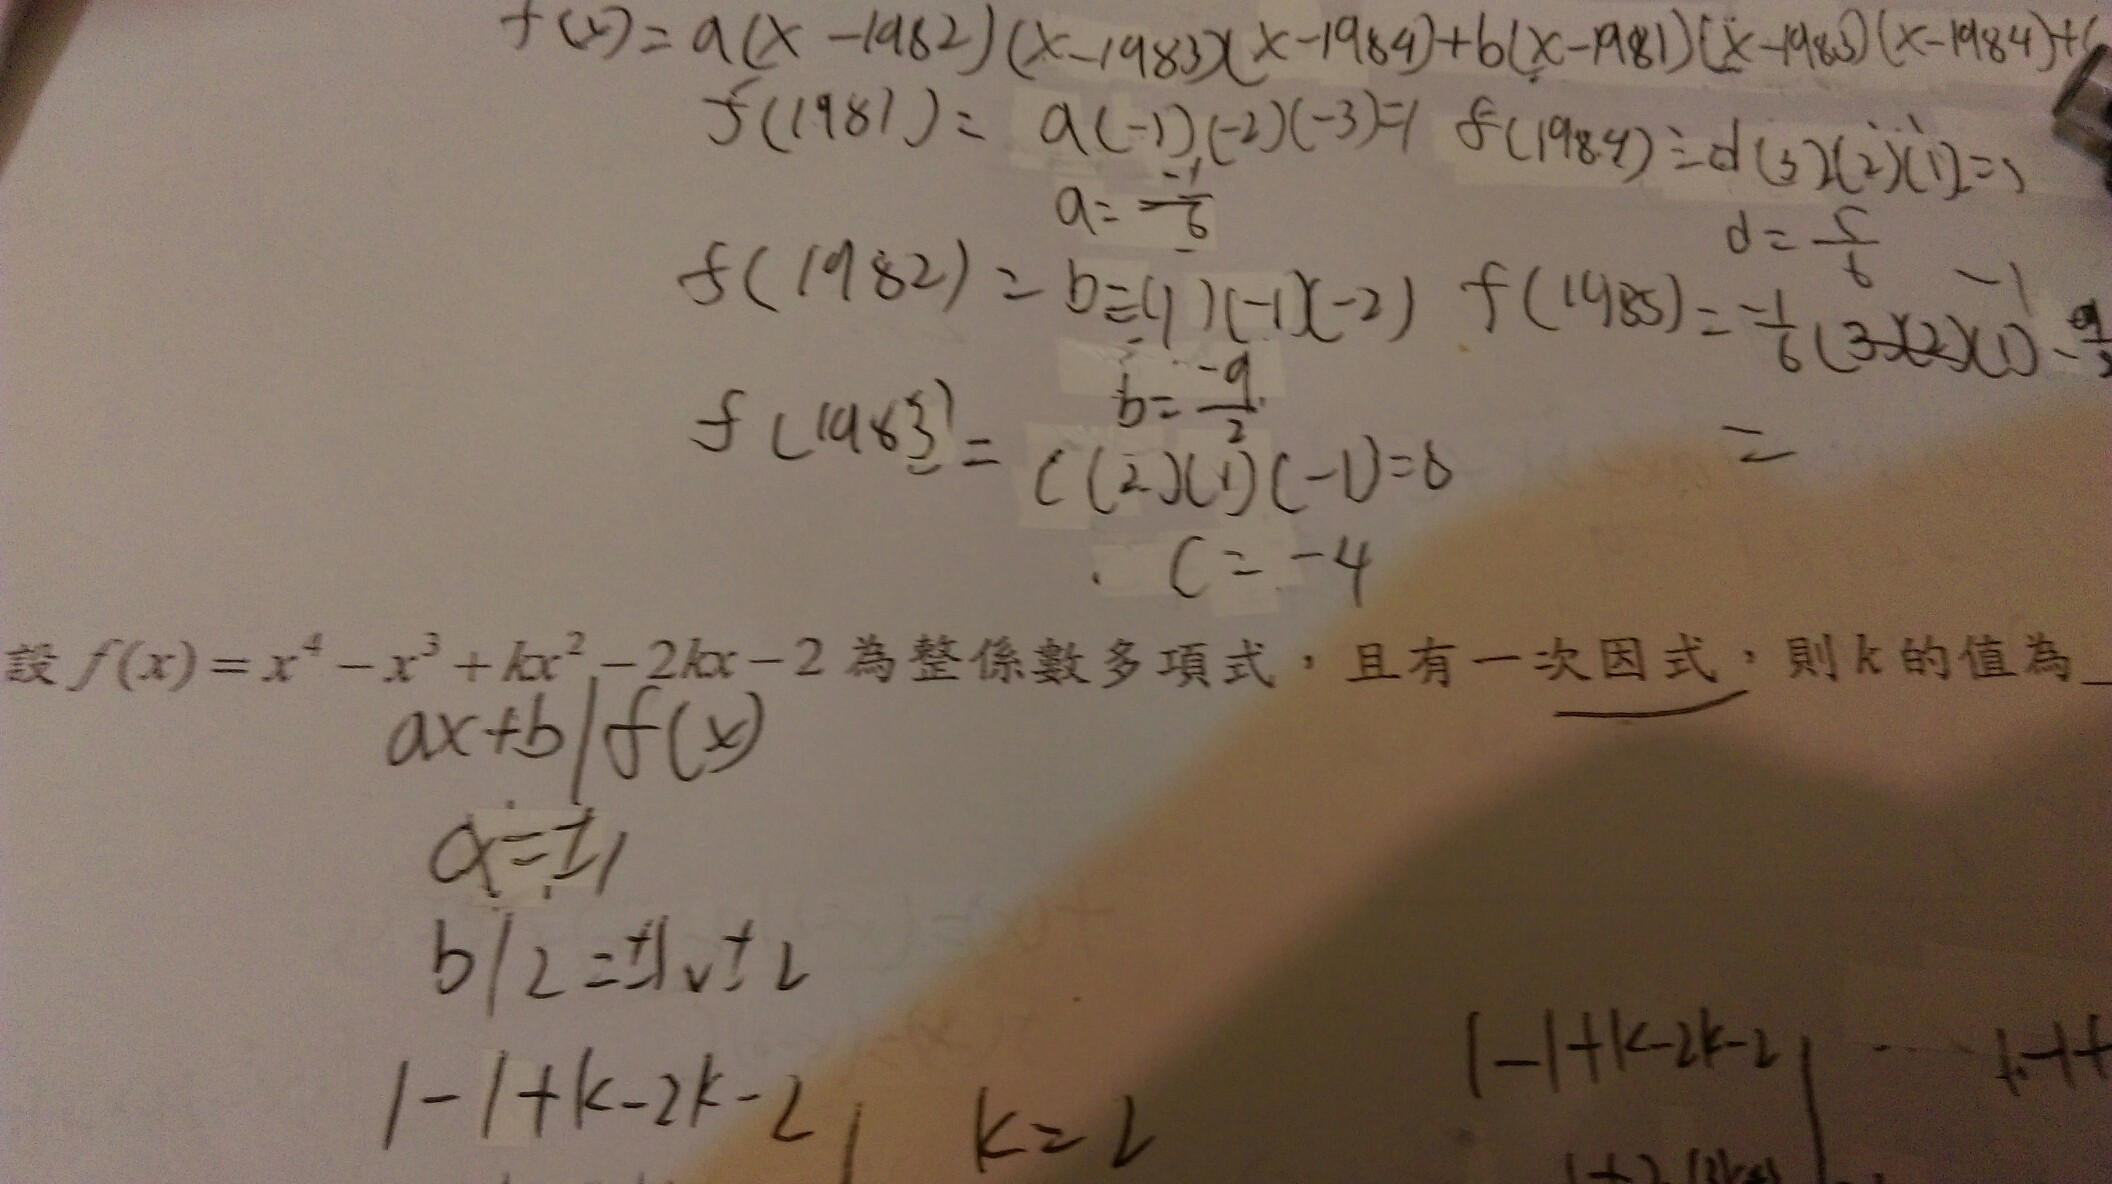 f(x)=a(x-1982)(x-1983)(x-1984)+b(x-1981)(x-1983)(x-1984)+(
f(1981)= a(-1)(-2)(-3)=1 f(1984)=d(3)(2)(1)=5
a=-1/6 d=5/6
f(1982)=b=(1)(-1)(-2) f(1985)=-1/6(3)(2)(1)
-1
b=-9/2
f(1983)= c(2)(1)(-1)=8 =
c=-4
設 f(x)=x⁴-x³+kx²-2kx-2 為整係數多項式,且有一次因式,則 k 的值為
ax+b|f(x)
a=±1
b|2=±1v±2
1-1+k-2k-2 k=2 1-1+k-2k-2 1-1+